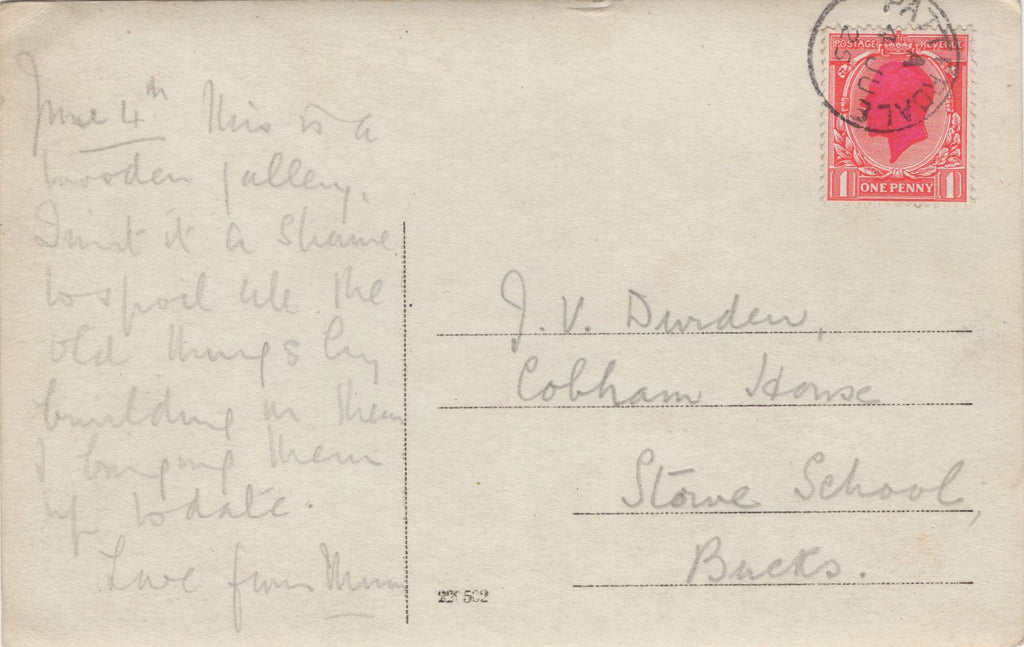 June 4th This is a
wooden gallery.
Isn't it a shame
to spoil all the
old things by
building on them
& bringing them
up to date.
Love from Mum
J. V. Durden,
Cobham House
Stowe School,
Bucks.
22* 502
PATTERDALE
A
4 JU
25
POSTAGE REVENUE
1 ONE PENNY 1